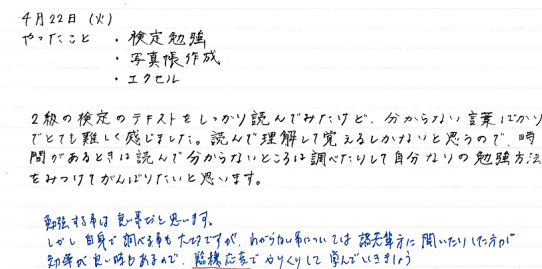 4月22日(火)
やったこと ・検定勉強
・写真帳作成
・エクセル
2級の検定のテキストをしっかり読んでみたけど、分からない言葉ばかり
でとても難しく感じました。読んで理解して覚えるしかないと思うので、時
間があるときは読んで分からないところは調べたりして自分なりの勉強方法
をみつけてがんばりたいと思います。
勉強する事は良い事だと思います。
しかし自身で調べる事も大切ですが、わからない事については諸先輩方に聞いたりした方が
効率が良い時もあるので、臨機応変でやりくりして学んでいきましょう